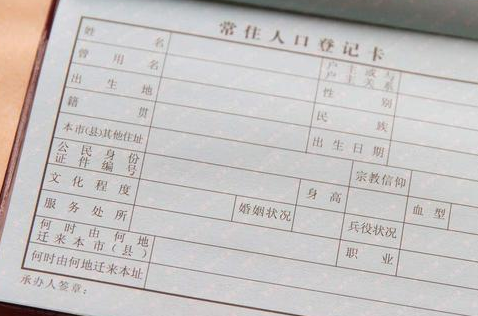 常住人口登记卡
姓名 户主或与户主关系
曾用名 性别
出生地 民族
籍贯 出生日期
本市(县)其他住址 宗教信仰
公民身份证件编号 身高 血型
文化程度 婚姻状况 兵役状况
服务处所 职业
何时由何地迁来本市(县)
何时由何地迁来本址
承办人签章: